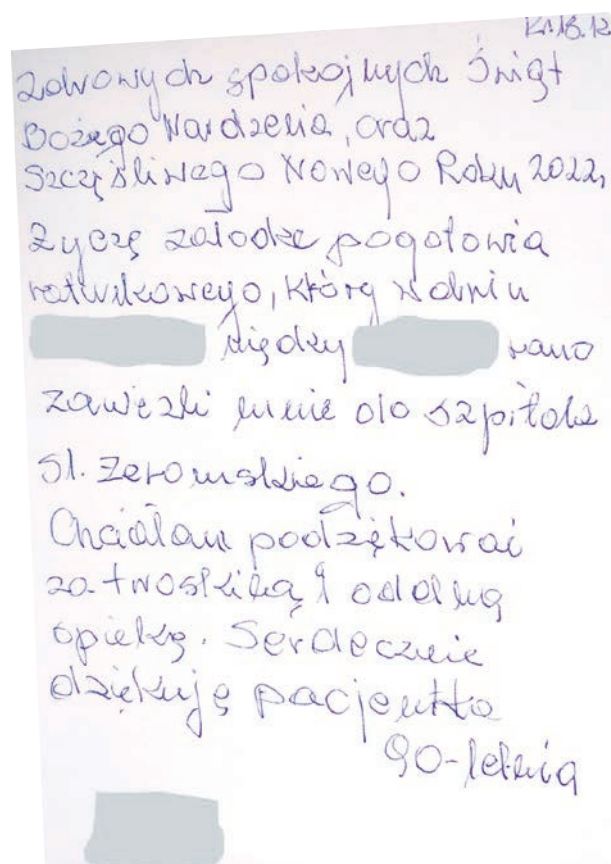 Kr. 18.12
Zdrowych spokojnych Świąt
Bożego Nardzenia, oraz
Szczęśliwego Nowego Roku 2022,
życzę załodze pogotowia
ratunkowego, który w dniu
między rano
zawieźli mnie do szpitala
St. Żeromskiego.
Chciałam podziękować
za troskliwą i oddaną
opiekę. Serdecznie
dziękuję pacjentka
90-letnia